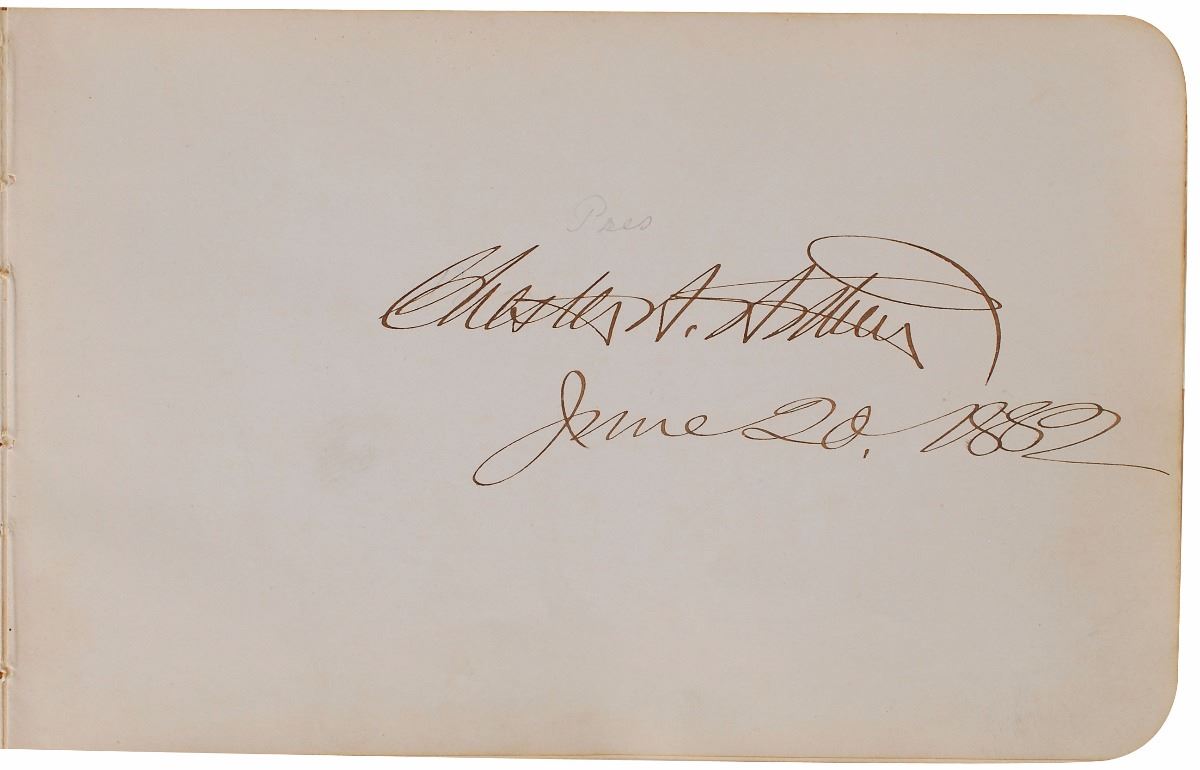 Pres
Chester A. Arthur
June 20, 1882